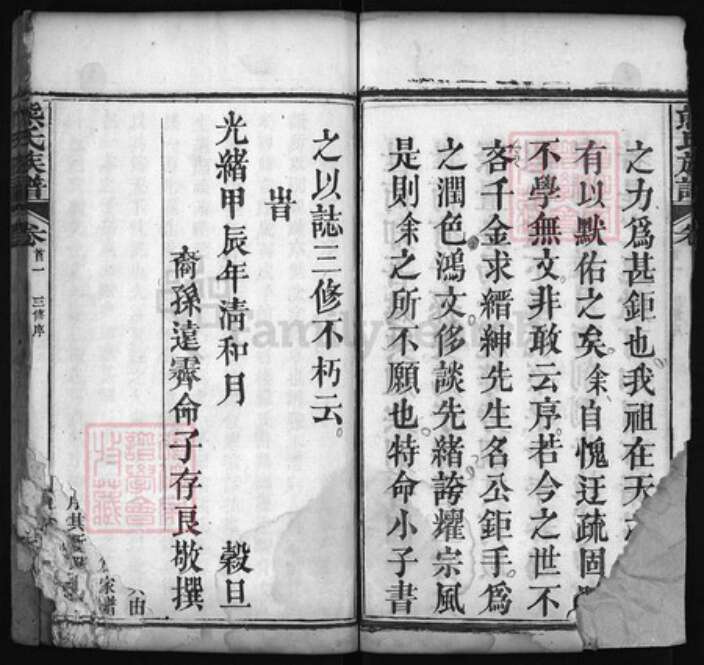 之力爲甚鉅也我祖在天
有以默佑之矣余自愧迂疏固
不學無文非敢云序若今之世不
吝千金求縉紳先生名公鉅手爲
之潤色鴻文侈談先緒誇耀宗風
是則余之所不願也特命小子書
之以誌三修不朽云
旹
光緒甲辰年清和月 穀旦
裔孫遠霽命子存艮敬撰
熊氏族譜
首一 三修序
FamilySearch